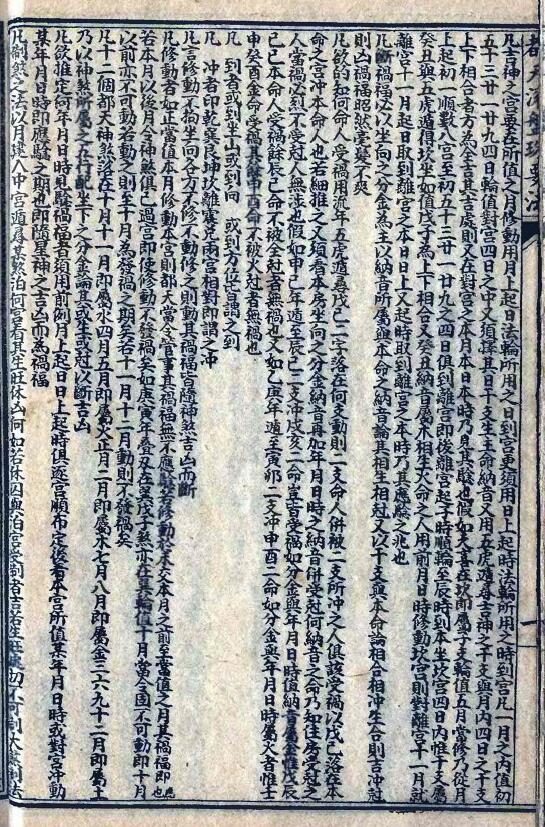 凡吉神之宮要在所值之月修動用月上起日法輪所用之日到宮更須用日上起時法輪所用之時到宮凡一月之內值初
五十三廿一廿九四日輪值對宮四日之中又須擇其日干支生主命納音又用五虎遁尋吉神之干支與月內四日之干支
上下相合者方為全吉其吉處則又在對宮之本月本日本時乃見其驗也假如天喜在坎即屬子支輪值五月當修乃從月
上起初一順數八宮至初五十三廿一廿九之四日俱到離宮即後離宮起子時順輪至辰時到本坎宮四日內惟干支屬
癸丑與五虎遁得坎坐如值戊子為上下相合又癸丑納音屬木相生火命之人用前月日時修動坎宮則對離宮午十一月就
離宮十一月起日取到離宮之本日日上又起時取到離宮之本時乃其應驗之兆也
凡斷禍福必以坐向之分金為主以納音所屬與本命之納音論其相生相尅又以干支與本命論相合相冲生合則吉冲尅
則凶禍福昭然毫釐不爽
凡欲的知何命人受禍用流年五虎遁尋戊己二字落在何支動則二支命人併被二支所冲之人俱該受禍以戊己落在本
命之宮冲本命人也若細推之又須看本房坐向之分金納音再加年月日時之納音併受尅何納音之命乃知住房受尅之
人當禍必烈不受尅人無涉也假如甲己年遁至辰巳二支冲戌亥二命豈皆受禍如分金與年月日時值納音屬金惟戊辰
己巳本命人受禍餘辰巳命不被全尅者無禍也又如乙庚年遁至寅卯二支冲申酉二命如分金與年月日時屬火者惟壬
申癸酉金命受禍其餘申酉命不被火尅者無禍也
凡 到者或到坐山或到向 或到方位皆謂之到
凡 冲者即乾巽艮坤坎離震兌兩宮相對即謂之冲
凡言修動不拘坐向各方不修不動修之則動其禍福皆隨神煞吉凶而斷
凡修動者如正當值本月修動本宮則都天當令管事其禍福無不應驗若修動者本交本月之前至當值之月其禍福即應
若本月以後月令神煞俱已過宮即使修動不發禍矣如庚寅年叠又在艮戊子煞亦在其輪值十月當令之固不可動即十月
以前亦不可動若動之則至十月為發禍之期至若十一月十二月動則不發禍矣
凡十二個都天神煞落在十月十一月即屬水四月五月即屬火正月二月即屬木七月八月即屬金三六九十二月即屬土
乃以神煞所屬之五行配坐下之分金論其或生或尅以斷吉凶
凡欲推定何年月日時見驗禍福者須用前例月上起日日上起時俱逐宮順布定後看坐宮所值某年月日時或對宮冲動
某年月日時即應驗之期也即隨星神之吉凶而為禍福
凡制煞之法以月建入中宮遁尋其煞泊何宮看其生旺休囚何如若休囚與泊宮受制者吉若生旺